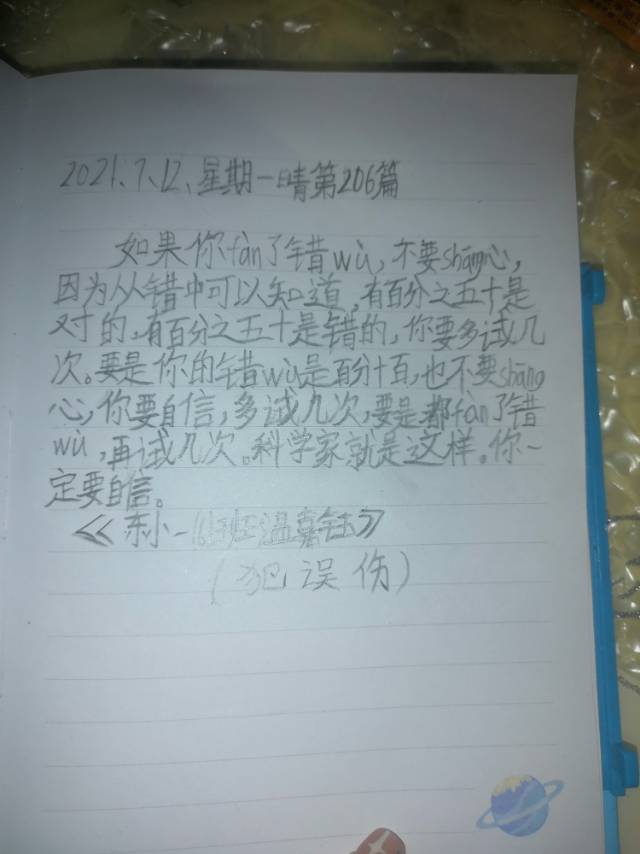 2021、7、12、星期一晴第206篇
如果你fàn了错wù，不要shāng心，
因为从错中可以知道，有百分之五十是
对的，有百分之五十是错的，你要多试几
次。要是你的错wù是百分十百，也不要shāng
心，你要自信，多试几次，要是都fàn了错
wù，再试几次。科学家就是这样。你一
定要自信。
《东小一 班温嘉钰》
（犯误伤）